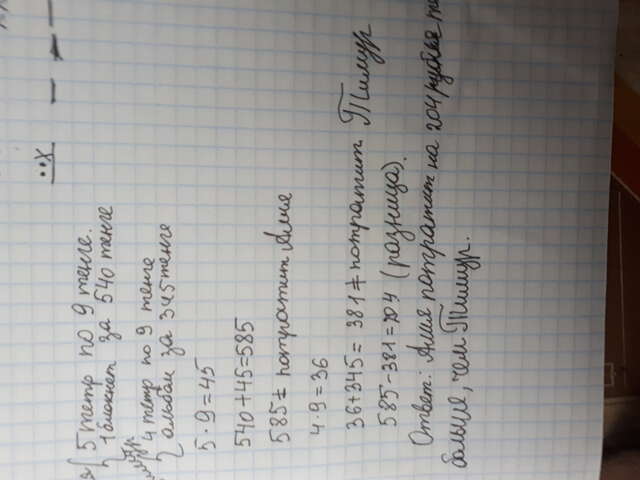 х
5 тетр по 9 тенге.
1 блокнет за 540 тенге
4 тетр по 9 тенге
альбом за 345 тенге
5 · 9 = 45
540 + 45 = 585
585 = потратит Алия
4 · 9 = 36
36 + 345 = 381 = потратит Тимур
585 - 381 = 204 (разница).
Ответ: Алия потратит на 204
больше, чем Тимур.